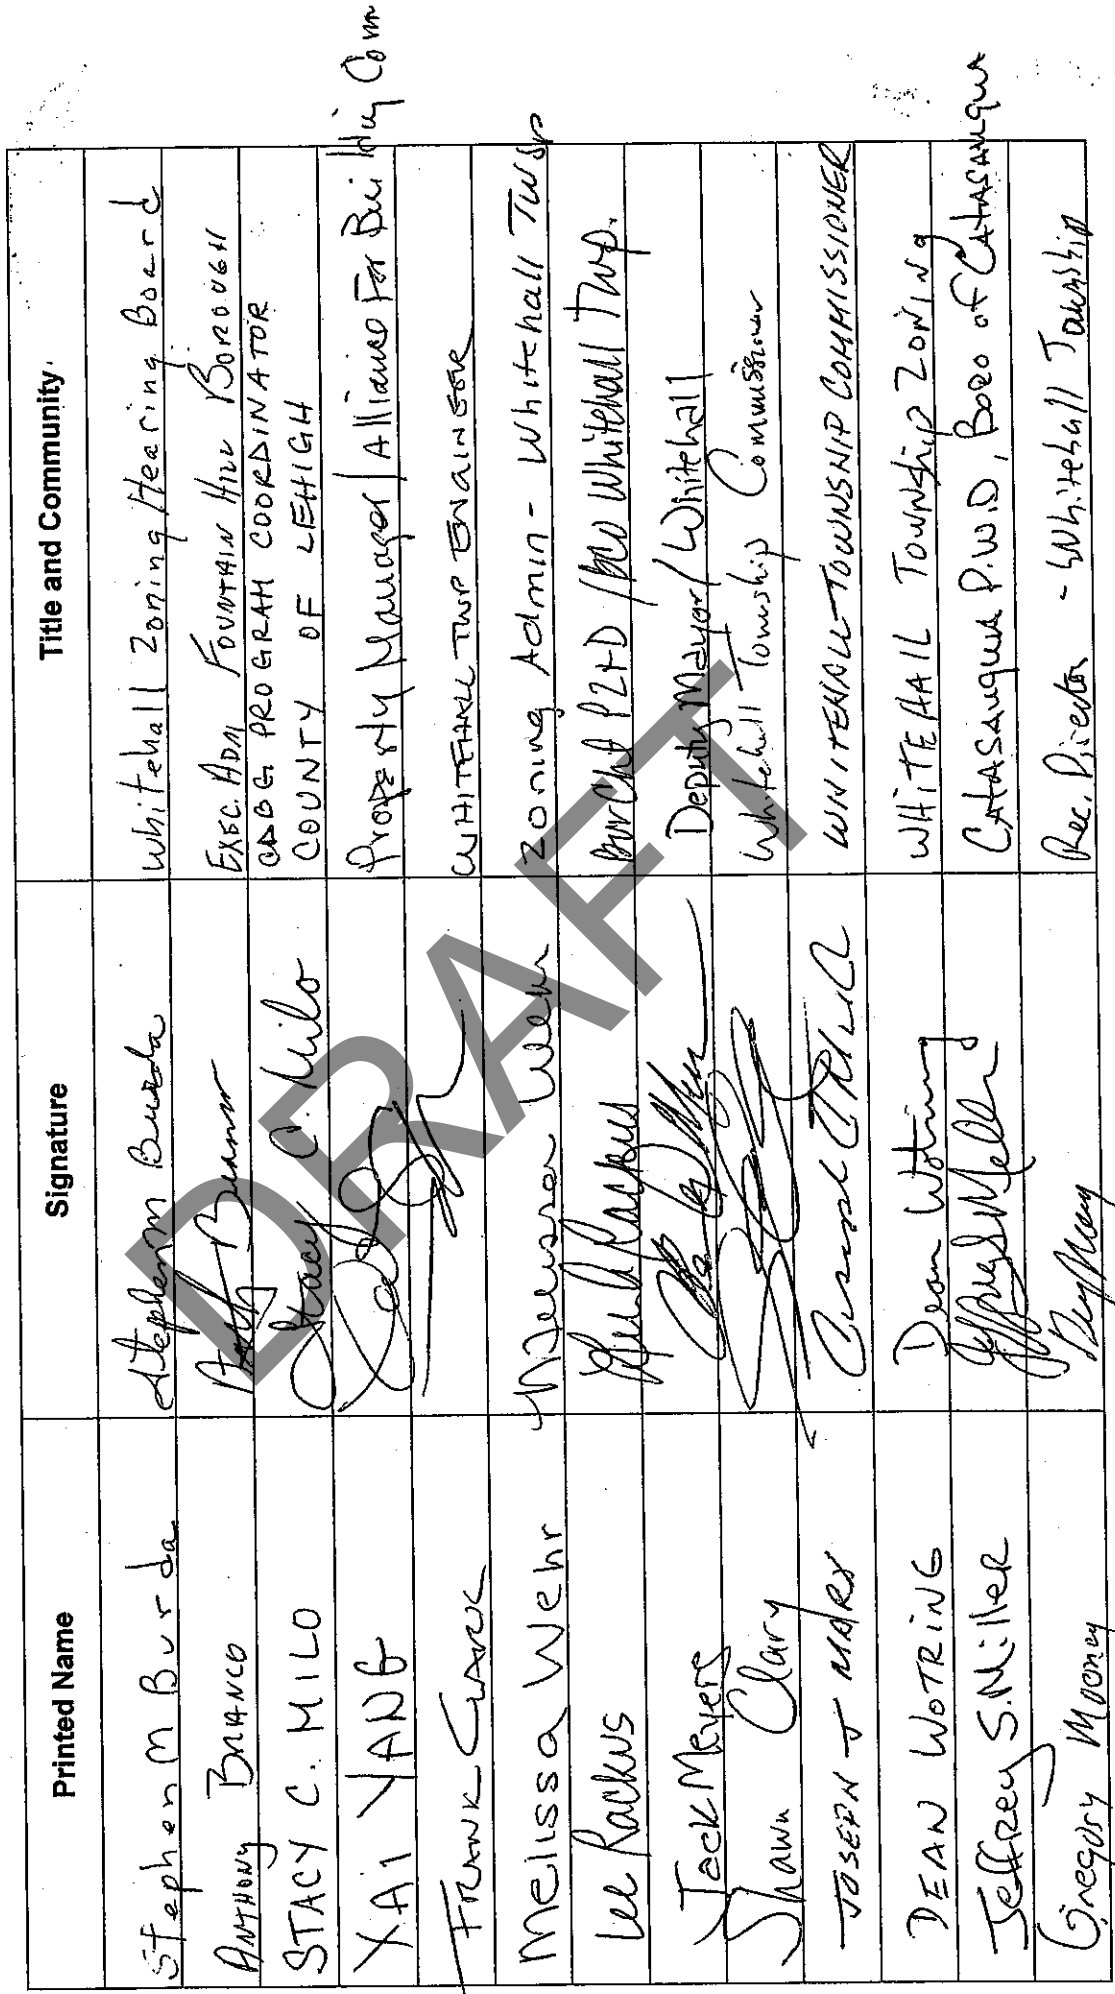 Printed Name Signature Title and Community
Stephen M Burda Stephen M Burda Whitehall Zoning Hearing Board
ANTHONY BRANCO EXEC. ADM. FOUNTAIN HILL BOROUGH
STACY C. MILO Stacy C. Milo CDBG PROGRAM COORDINATOR
COUNTY OF LEHIGH
XAI YANG Property Manager / Alliance For Building Com
FRANK CLARK WHITEHALL TWP ENGINEER
Melissa Wehr Melissa Wehr Zoning Admin - Whitehall Twsp
Lee Rackus Lee Rackus PZ+D / BCO Whitehall Twp.
Jack Meyers Deputy Mayor / Whitehall
Shawn Clary Whitehall Township Commissioner
JOSEPH J MARX WHITEHALL TOWNSHIP COMMISSIONER
DEAN WOTRING Dean Wotring WHITEHALL TOWNSHIP ZONING
Jeffrey S. Miller Jeffrey S Miller CATASAUQUA P.W.D, BORO of CATASAUQUA
Gregory Mooney Rec. Director - Whitehall Township
DRAFT